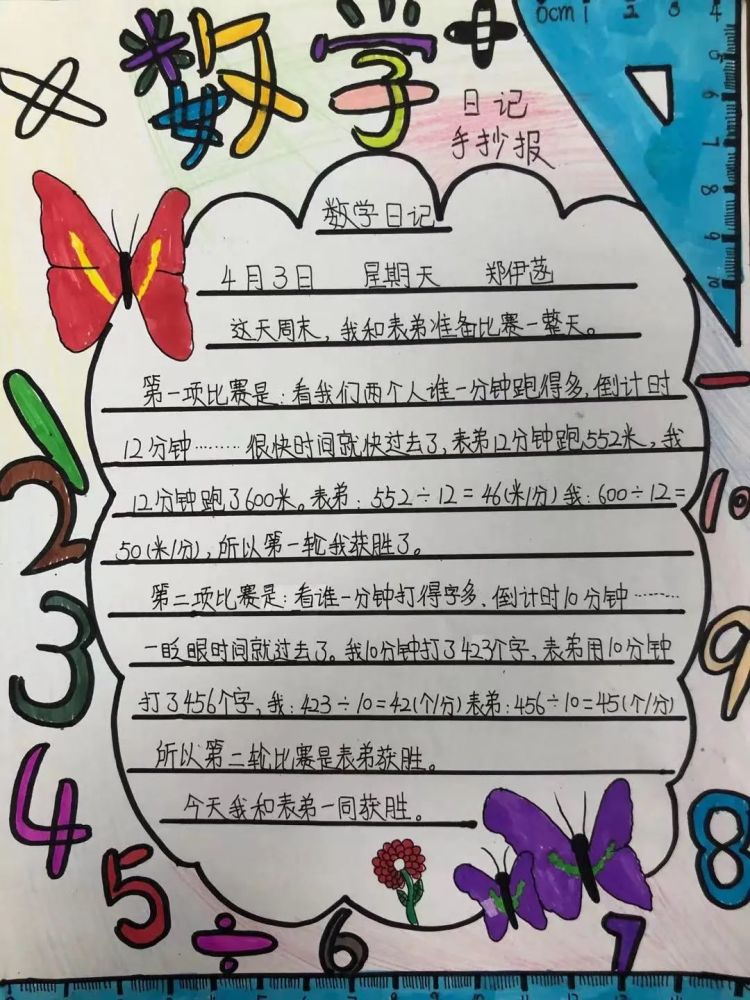 数学
日记
手抄报
0cm 1 2 3 4
5
6
7
8
9
10
数学日记
4月3日 星期天 郑伊菡
这天周末，我和表弟准备比赛一整天。
第一项比赛是：看我们两个人谁一分钟跑得多，倒计时
12分钟………很快时间就快过去了，表弟12分钟跑552米，我
12分钟跑了600米。表弟：552÷12=46(米/分)我：600÷12=
50(米/分)，所以第一轮我获胜了。
第二项比赛是：看谁一分钟打得字多、倒计时10分钟………
一眨眼时间就过去了。我10分钟打了423个字、表弟用10分钟
打了456个字，我：423÷10=42(个/分)表弟：456÷10=45(个/分)
所以第二轮比赛是表弟获胜。
今天我和表弟一同获胜。
× +
1
2
3
4
5
÷
6
7
8
9
10
−